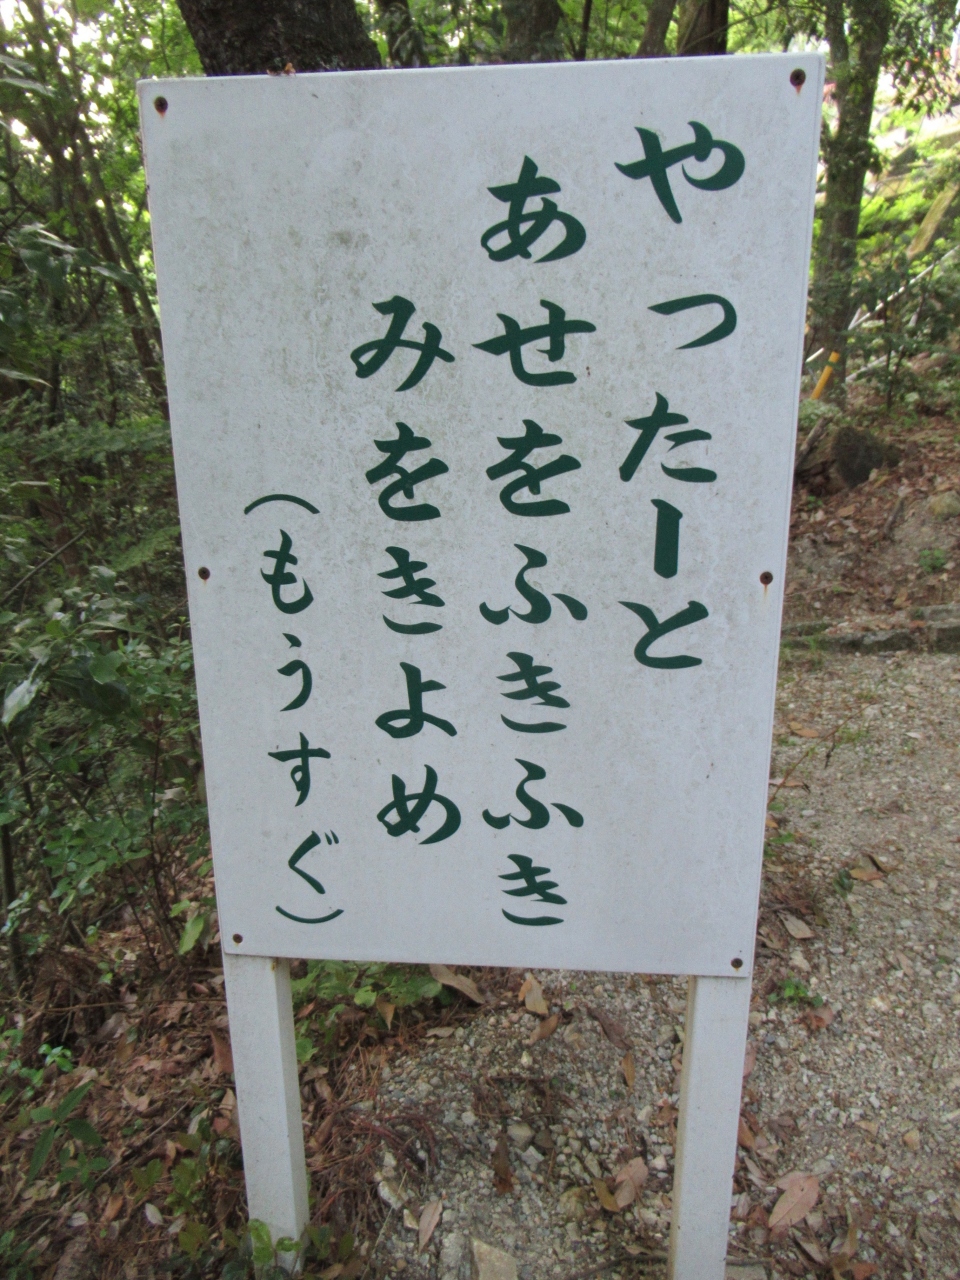 やったーと
あせをふきふき
みをきよめ
(もうすぐ)